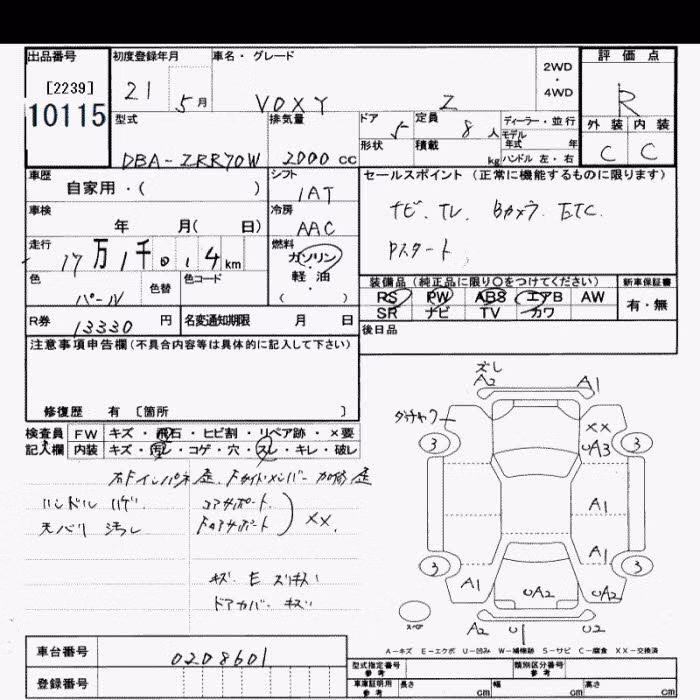 出品番号 初度登録年月 車名・グレード 評価点
[2239] 21 5月 VOXY Z 2WD・4WD R
10115
型式 排気量 ドア 5 定員 8人 ディーラー・並行
モデル年式 年
外装 内装
DBA-ZRR70W 2000cc 形状 積載 kg ハンドル 左・右 C C
車歴 シフト セールスポイント (正常に機能するものに限ります)
自家用・( ) IAT
車検 冷房 ナビ、TV、Bカメラ、ETC
年 月( 日) AAC
走行 燃料 Pスタート
17万1千 km ガソリン
色 色替 色コード 軽油 装備品 (純正品に限り〇をつけてください) 新車保証書
パール ( ) PS PW ABS エアB AW 有・無
SR ナビ TV カワ
R券 13330円 名変通知期限 月 日 後日品
注意事項申告欄(不具合内容等は具体的に記入して下さい)
修復歴 有 〔箇所 〕
検査員 FW キズ・飛石・ヒビ割・リペア跡・×要
記入欄 内装 キズ・汚レ・コゲ・穴・スレ・キレ・破レ
ズレ
A2 A1
XX
3 UA3 3
A1
A1
3 3
A1 UA2 UA2
A2 U1 U2
スペア
ハンドル ハゲ コアサポート
天バリ 汚レ XX
キズ E スリキズ
ドアカバー キズ
A-キズ E-エクボ U-凹み W-補修跡 S-サビ C-腐食 XX-交換済
車台番号 0208601 型式指定番号 参考 類別区分番号 参考
登録番号 車庫証明用 参考 長さ cm 幅 cm 高さ cm